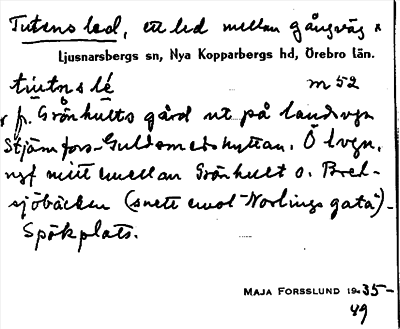 Tutens led, ett led mellan gångväg
Ljusnarsbergs sn, Nya Kopparbergs hd, Örebro län.
m 52
fr. Grönhults gård ut på landsvgn
Stjärnfors-Guldsmedshyttan. Ö lvgn,
ngf mitt emellan Grönhult o. Bred-
sjöbäcken (snett emot "Norlings gata").
Spökplats.
MAJA FORSSLUND 1935-
49